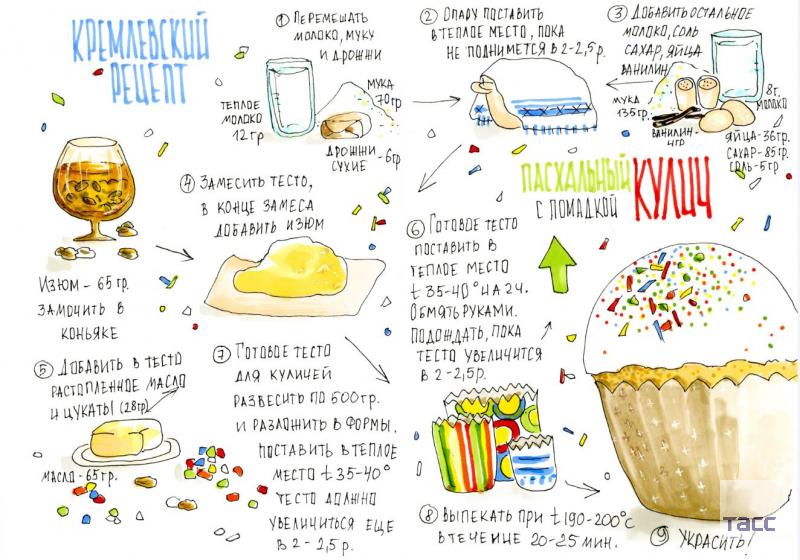 КРЕМЛЕВСКИЙ
РЕЦЕПТ
① ПЕРЕМЕШАТЬ
МОЛОКО, МУКУ
И ДРОЖЖИ
ТЕПЛОЕ
МОЛОКО
12 ГР.
МУКА
70 ГР
ДРОЖЖИ
СУХИЕ - 6 ГР
② ОПАРУ ПОСТАВИТЬ
В ТЕПЛОЕ МЕСТО, ПОКА
НЕ ПОДНИМЕТСЯ В 2-2,5 р.
③ ДОБАВИТЬ ОСТАЛЬНОЕ
МОЛОКО, СОЛЬ
САХАР, ЯЙЦА
ВАНИЛИН
8 Г.
МОЛОКО
МУКА
135 ГР.
ВАНИЛИН-
4 ГР
ЯЙЦА-36 ГР.
САХАР-85 ГР.
СОЛЬ-5 ГР
ПАСХАЛЬНЫЙ
С ПОМАДКОЙ
КУЛИЧ
ИЗЮМ - 65 ГР.
ЗАМОЧИТЬ В
КОНЬЯКЕ
④ ЗАМЕСИТЬ ТЕСТО,
В КОНЦЕ ЗАМЕСА
ДОБАВИТЬ ИЗЮМ
⑤ ДОБАВИТЬ В ТЕСТО
РАСТОПЛЕННОЕ МАСЛО
И ЦУКАТЫ (28 ГР)
МАСЛО - 65 ГР.
⑥ ГОТОВОЕ ТЕСТО
ПОСТАВИТЬ В
ТЕПЛОЕ МЕСТО
t 35-40° НА 2 Ч.
ОБМЯТЬ РУКАМИ.
ПОДОЖДАТЬ, ПОКА
ТЕСТО УВЕЛИЧИТСЯ
В 2-2,5 р.
⑦ ГОТОВОЕ ТЕСТО
ДЛЯ КУЛИЧЕЙ
РАЗВЕСИТЬ ПО 500 ГР.
И РАЗЛОЖИТЬ В ФОРМЫ,
ПОСТАВИТЬ В ТЕПЛОЕ
МЕСТО t 35-40°
ТЕСТО ДОЛЖНО
УВЕЛИЧИТЬСЯ ЕЩЕ
В 2 - 2,5 р.
⑧ ВЫПЕКАТЬ ПРИ t 190-200°C
В ТЕЧЕНИЕ 20-25 МИН.
⑨ УКРАСИТЬ!
ТАСС